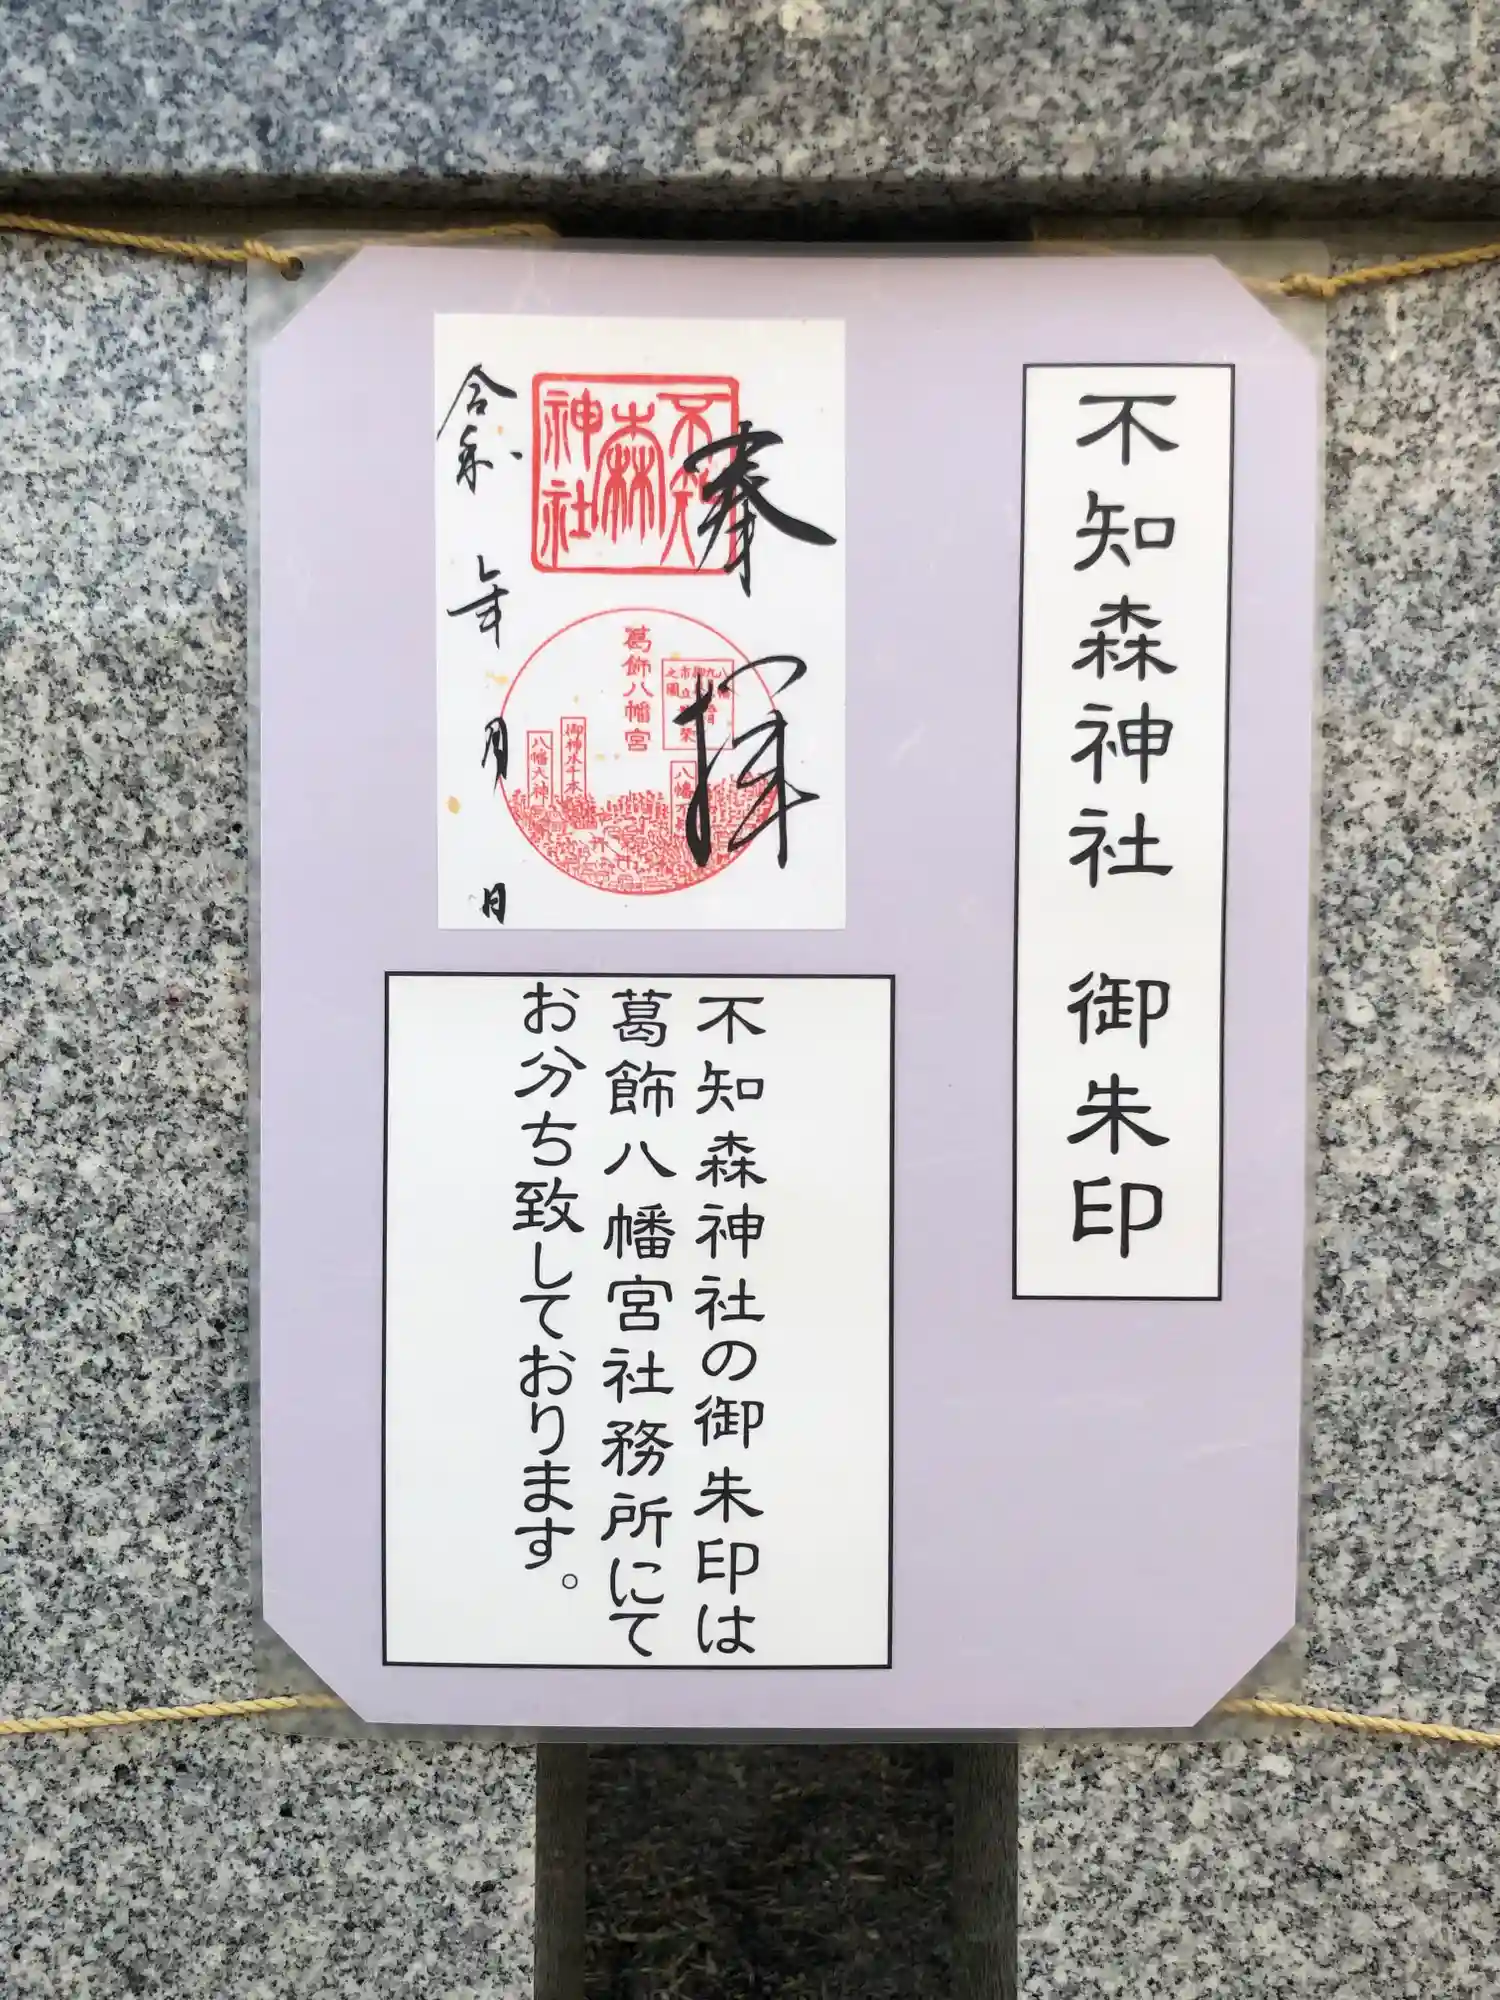 不知森神社 御朱印
奉拝
不知
森
神社
葛飾八幡宮
八幡大神
令和 年 月 日
不知森神社の御朱印は
葛飾八幡宮社務所にて
お分ち致しております。